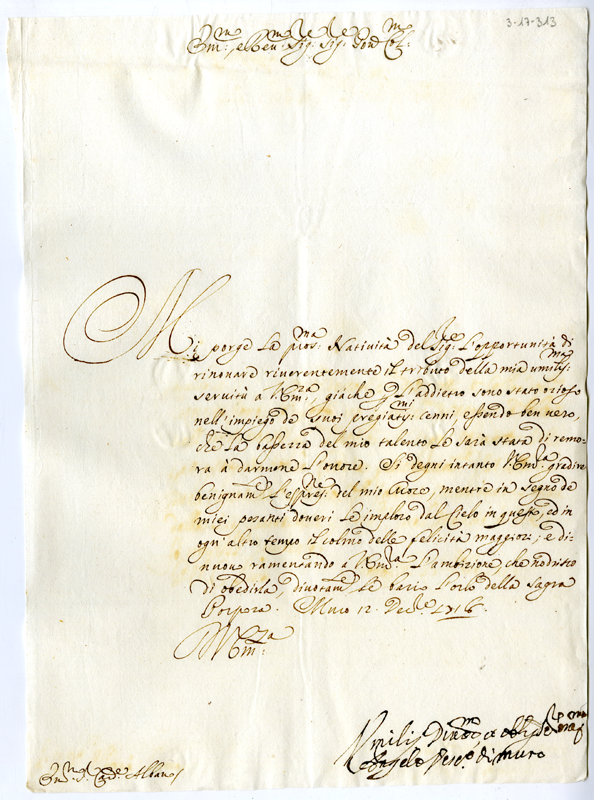 3-17-313
Em.mo, e Rev.mo Sig.re Sig.re Pron Col.mo
Mi porge la pros.ma Natività del Sig.re l'opportunità di
rinovare riverentemente il tributo della mia umilis.ma
servitù a V. Em.za, giache per l'addietro sono stato ozioso
nell'impiego de' suoi pregiatis.mi cenni, essendo ben vero,
che la bassezza del mio talento le sarà stata di remo-
ra à darmene l'onore. Si degni intanto V. Em.za gradire
benignam.te l'espres.ne del mio Cuore, mentre in segno de
miei pesanti doveri le imploro dal Cielo in questo, ed in
ogn'altro tempo il colmo delle felicità maggiori; e di
nuovo ramentando a V. Em.za l'ambizione, che nodrisco
di obedirla, divotam.te le bacio l'orlo della Sagra
Porpora. Muro 12. Dec.re 1716.
V. Em.za
Umilis. Divo.mo et obl.
Angelo Vesc.o di Muro
Em.mo Sig.re Card.e Albani